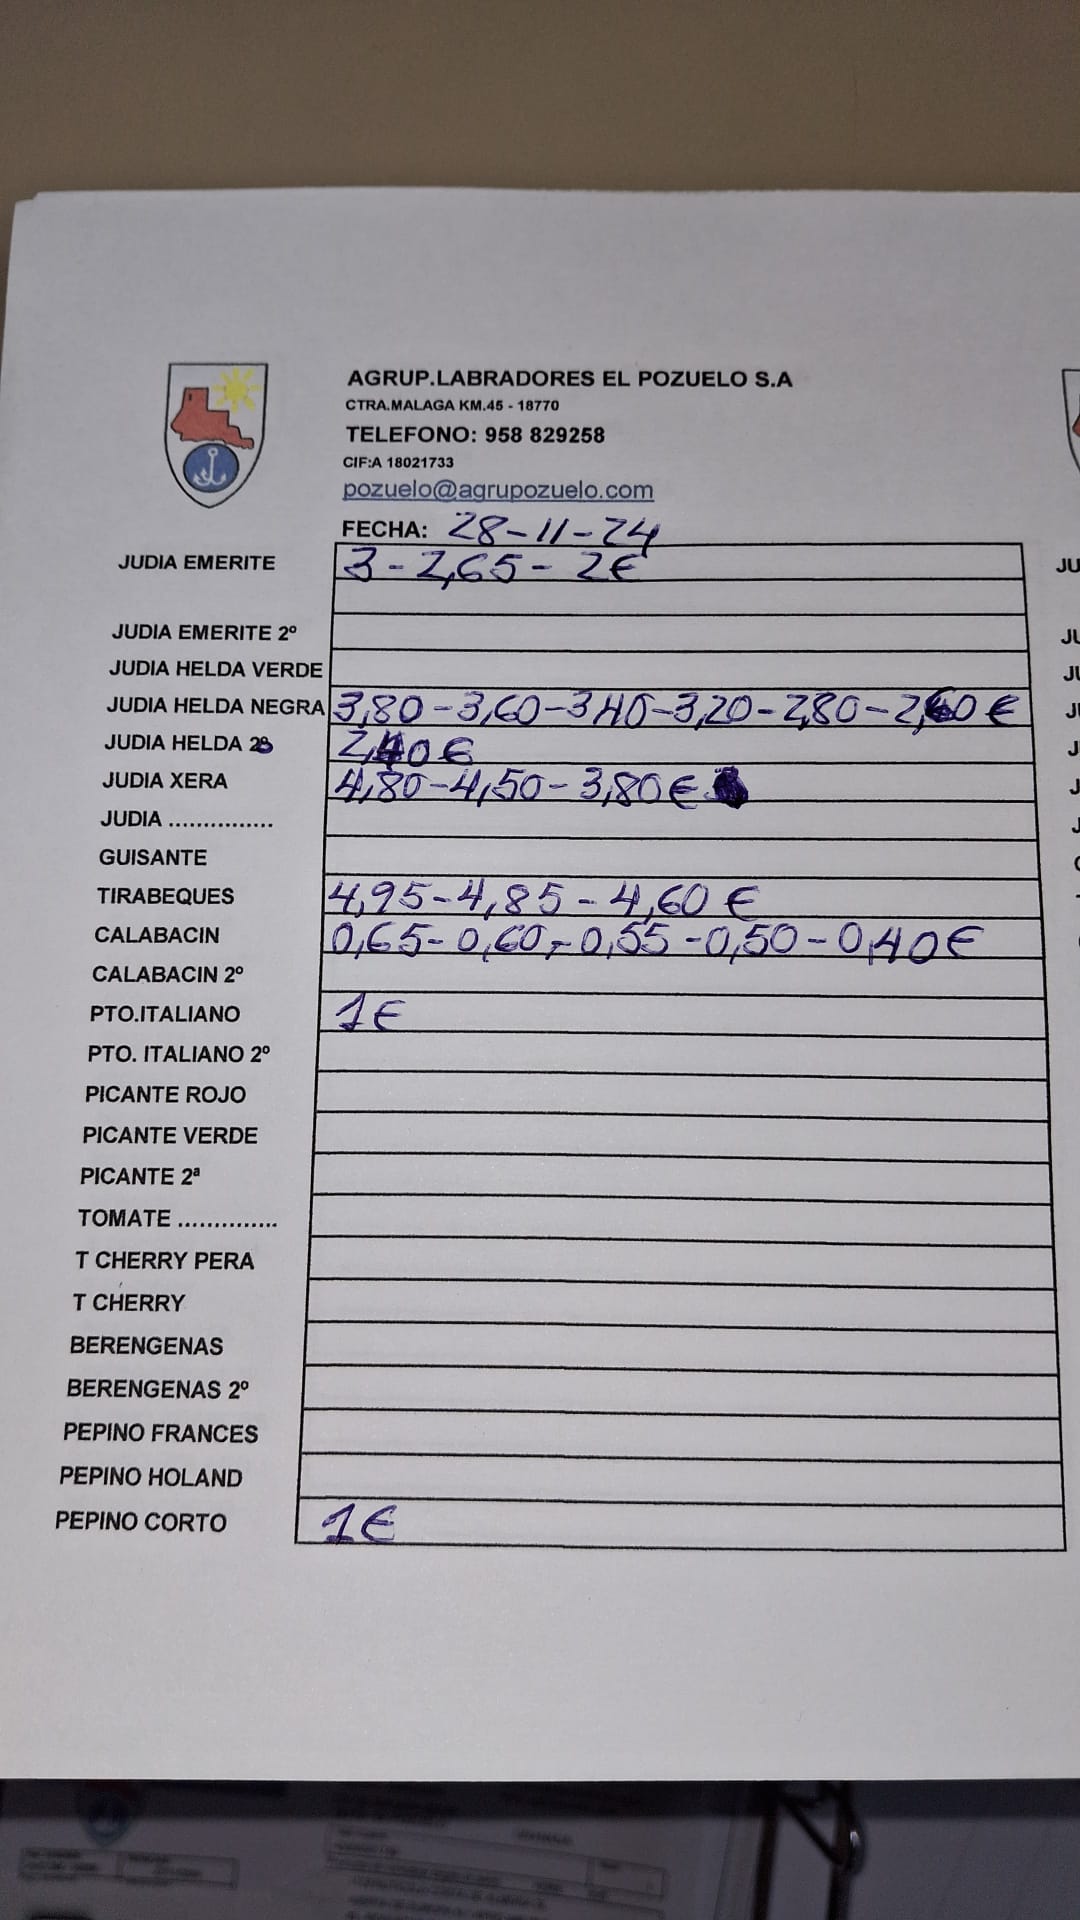 AGRUP.LABRADORES EL POZUELO S.A
CTRA.MALAGA KM.45 - 18770
TELEFONO: 958 829258
CIF:A 18021733
pozuelo@agrupozuelo.com
FECHA: 28-11-24
JUDIA EMERITE 3 - 2,65 - 2€
JUDIA EMERITE 2º
JUDIA HELDA VERDE
JUDIA HELDA NEGRA 3,80 - 3,60 - 3,40 - 3,20 - 2,80 - 2,60 €
JUDIA HELDA 2ª 2,40 €
JUDIA XERA 4,80 - 4,50 - 3,80 €
JUDIA ...............
GUISANTE
TIRABEQUES 4,95 - 4,85 - 4,60 €
CALABACIN 0,65 - 0,60 - 0,55 - 0,50 - 0,40 €
CALABACIN 2º
PTO.ITALIANO 1€
PTO. ITALIANO 2º
PICANTE ROJO
PICANTE VERDE
PICANTE 2ª
TOMATE ..............
T CHERRY PERA
T CHERRY
BERENGENAS
BERENGENAS 2º
PEPINO FRANCES
PEPINO HOLAND
PEPINO CORTO 1€